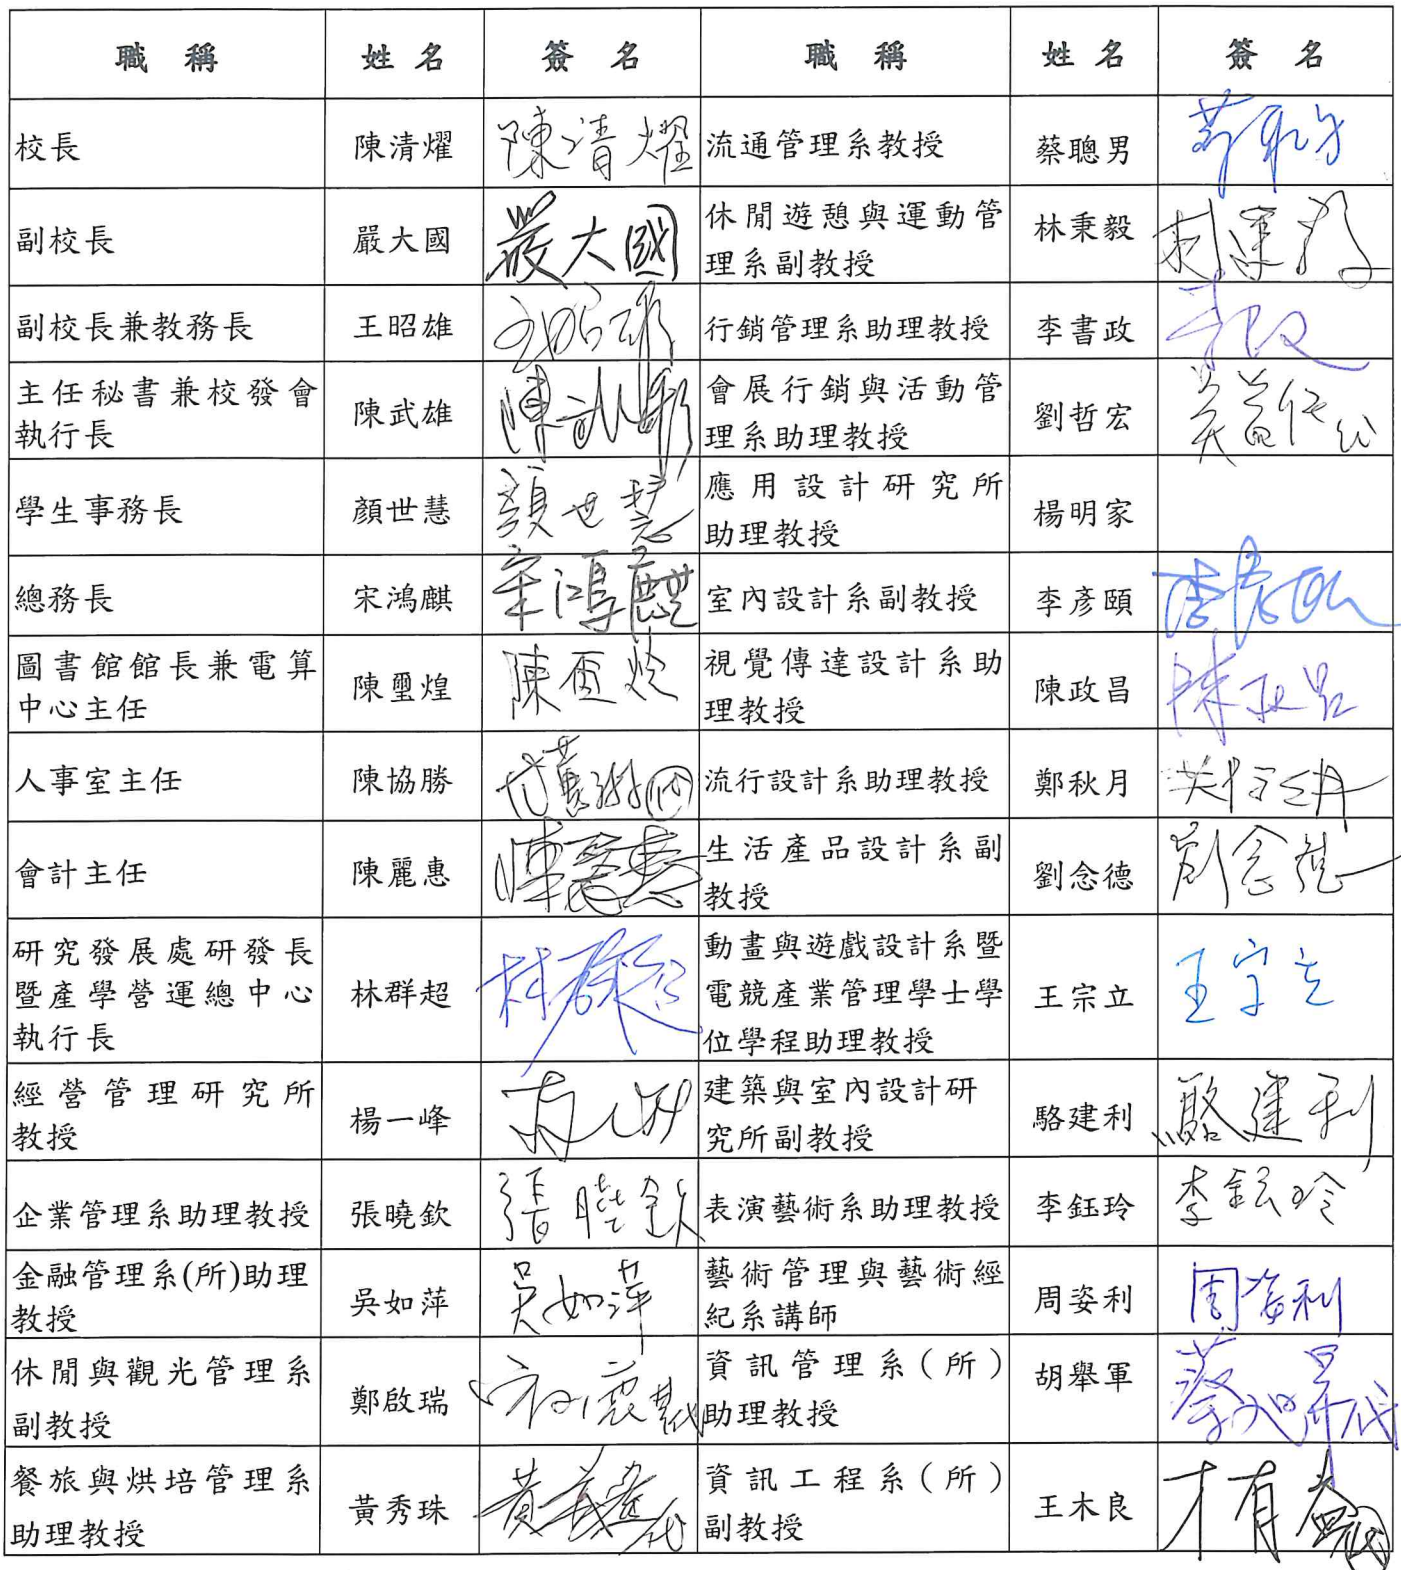 職 稱 姓 名 簽 名 職 稱 姓 名 簽 名
校長 陳清燿 陳清燿 流通管理系教授 蔡聰男
副校長 嚴大國 嚴大國 休閒遊憩與運動管
理系副教授 林秉毅
副校長兼教務長 王昭雄 王昭雄 行銷管理系助理教授 李書政
主任秘書兼校發會
執行長 陳武雄 陳武雄 會展行銷與活動管
理系助理教授 劉哲宏
學生事務長 顏世慧 顏世慧 應用設計研究所
助理教授 楊明家
總務長 宋鴻麒 宋鴻麒 室內設計系副教授 李彥頤 李彥頤
圖書館館長兼電算
中心主任 陳璽煌 陳璽煌 視覺傳達設計系助
理教授 陳政昌 陳政昌
人事室主任 陳協勝 流行設計系助理教授 鄭秋月
會計主任 陳麗惠 陳麗惠 生活產品設計系副
教授 劉念德 劉念德
研究發展處研發長
暨產學營運總中心
執行長 林群超 林群超 動畫與遊戲設計系暨
電競產業管理學士學
位學程助理教授 王宗立 王宗立
經營管理研究所
教授 楊一峰 建築與室內設計研
究所副教授 駱建利 駱建利
企業管理系助理教授 張曉欽 張曉欽 表演藝術系助理教授 李鈺玲 李鈺玲
金融管理系(所)助理
教授 吳如萍 吳如萍 藝術管理與藝術經
紀系講師 周姿利 周姿利
休閒與觀光管理系
副教授 鄭啟瑞 資訊管理系(所)
助理教授 胡舉軍
餐旅與烘培管理系
助理教授 黃秀珠 資訊工程系(所)
副教授 王木良